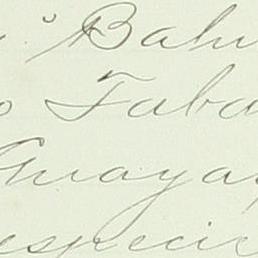 " Bahi
o Taba
Guaya
especi